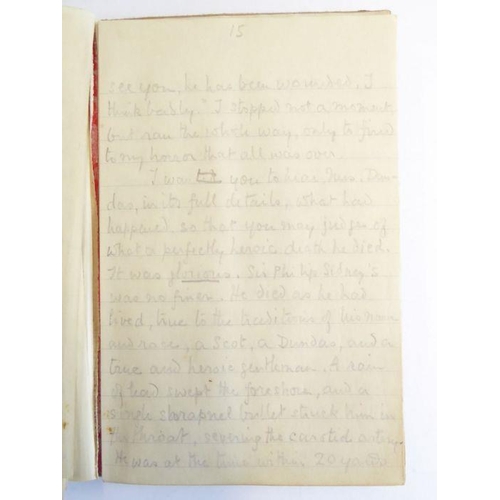 15
see you, he has been wounded, I
think badly." I stopped not a moment
but ran the whole way, only to find
to my horror that all was over.
I want you to hear Mrs. Dun-
das, in its full details, what had
happened, so that you may judge of
what a perfectly heroic death he died.
It was glorious. Sir Philip Sidney's
was no finer. He died as he had
lived, true to the traditions of his name
and race, a Scot, a Dundas, and a
true and heroic gentleman. A rain
of lead swept the foreshore, and a
single shrapnel bullet struck him in
the throat, severing the carotid artery.
He was at the time within 20 yards